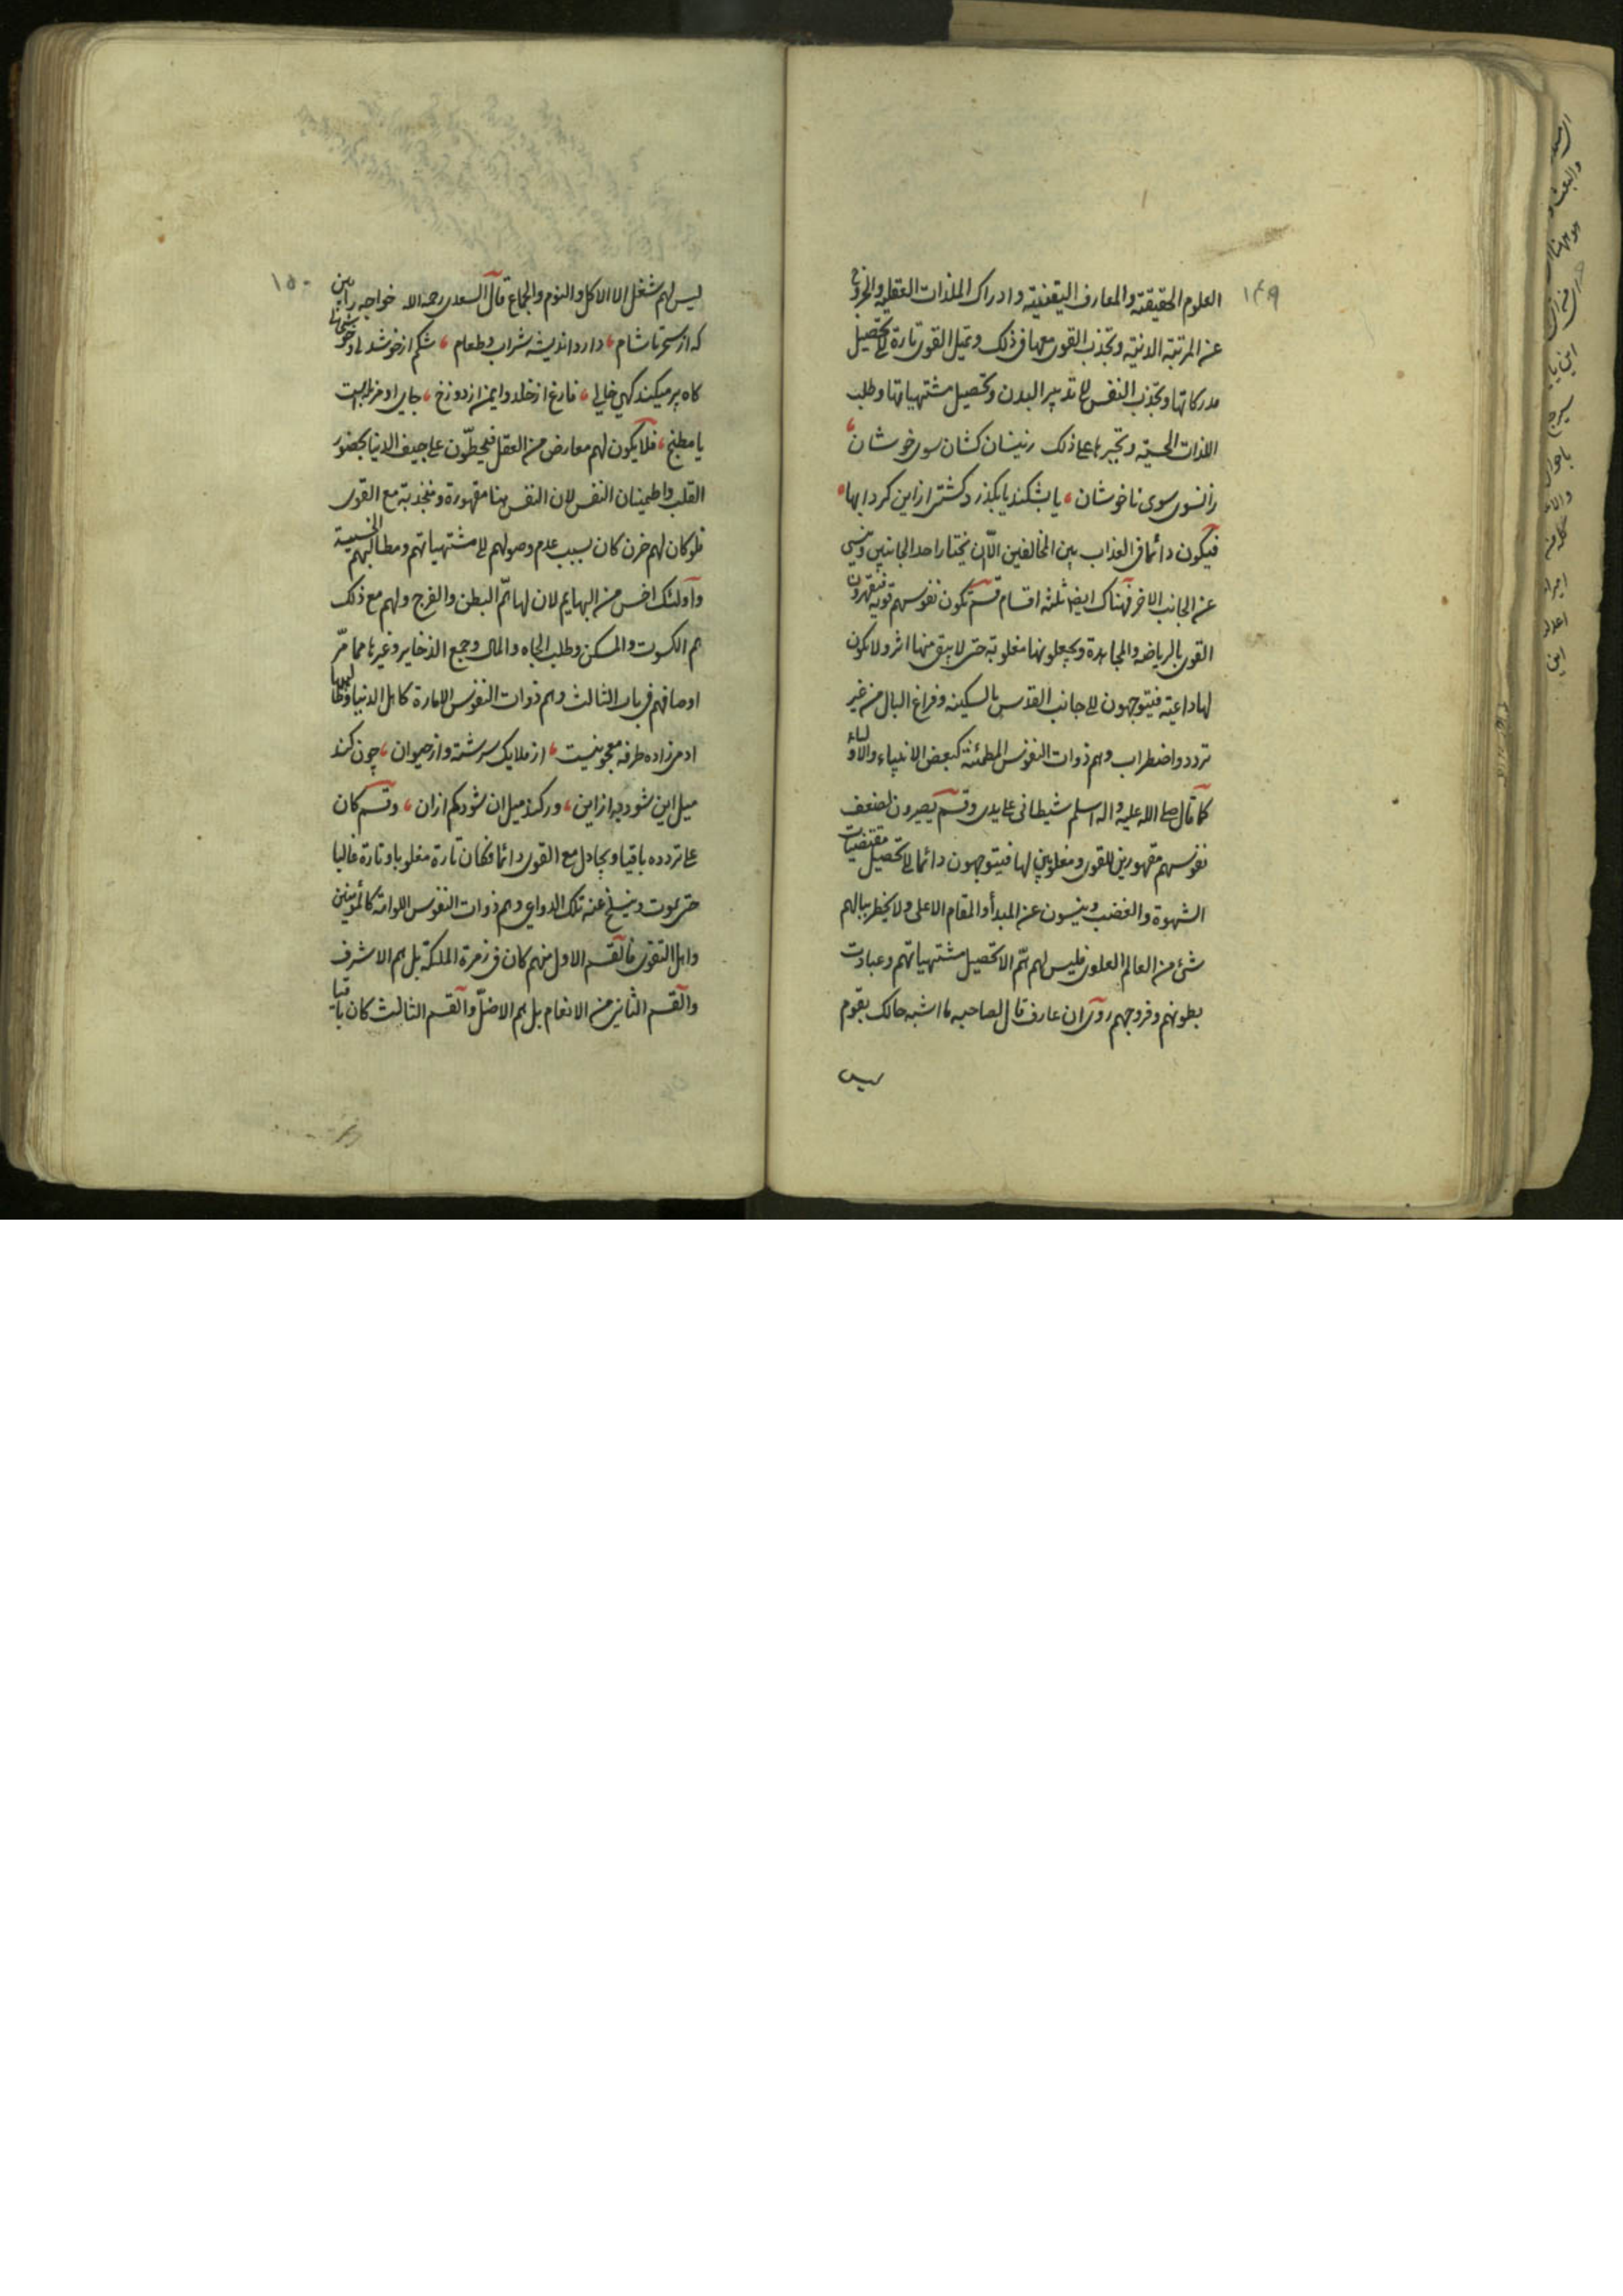 ١٤٩
العلوم الحقيقية والمعارف اليقينية وادراك الملذات العقلية والخروج
عن المرتبة الدنية وتجذب القوى معها فى ذلك وتميل القوى تارة الى تحصيل
مدركاتها وتجذب النفس الى تدبير البدن وتحصيل مشتهياتها وطلب
اللذات الحسية وتجبرها على ذلك زينسان كشان سوى خوشان
زانسوى سوى ناخوشان يا بشكند يا بكذرد كشتى از اين كردابها
فيكون دائما فى العذاب بين المخالفين الا ان يختار احد الجانبين وينسى
عن الجانب الاخر فهناك ايضا ثلثة اقسام قسم تكون نفوسهم قوية فيقهرون
القوى بالرياضة والمجاهدة ويجعلونها مغلوبة حتى لا يبق منها اثر ولا يكون
لها داعية فيتوجهون الى جانب القدس بالسكينه وفراغ البال من غير
تردد واضطراب وهم ذوات النفوس المطمئنة كبعض الانبياء والاولياء
كما قال صلى الله عليه واله اسلم شيطانى على يدى وقسم يصيرون لضعف
نفوسهم مقهورين للقوى ومغلوبين لها فيتوجهون دائما الى تحصيل مقتضيات
الشهوة والغضب وينسون عن المبدأ والمقام الاعلى ولا يخطر ببالهم
شئ من العالم العلوى فليس لهم هم الا تحصيل مشتهياتهم وعبادت
بطونهم وفروجهم روى ان عارف قال لصاحبه ما اشبه حالك بقوم
ليس
١٥٠
ليس لهم شغل الا الاكل والنوم والجماع قال السعدى رحمه الله خواجه را بين
كه از سحر تا شام دارد انديشه شراب وطعام شكم از خوشدلى وخوشى
كاه پر ميكند كهى خالى فارغ از خلد وايمن از دوزخ جاى او مزبله است
يا مطبخ فلا يكون لهم معارض من العقل فيحطون على جيف الدنيا بحضور
القلب واطمينان النفس لان النفس هنا مقهورة ومنجذبة مع القوى
فلو كان لهم حزن كان بسبب عدم وصولهم الى مشتهياتهم ومطالبهم الخسيسة
واولئك اخس من البهايم لان لها هم البطن والفرج ولهم مع ذلك
هم الكسوت والمسكن وطلب الجاه والمال وجمع الذخاير وغيرها مما مر
اوصافهم فى باب الثالث وهم ذوات النفوس الامارة كاهل الدنيا
ادمى زاده طرفه معجونيست از ملايك سرشته واز حيوان چون كند
ميل اين شود به از اين ور كند ميل ان شود كم ازان وقسم كان
على تردده باقيا ويجادل مع القوى دائما فكان تارة مغلوبا وتارة غالبا
حتى يموت وينسلخ عنه تلك الدواعى وهم ذوات النفوس اللوامة كالمؤمنين
واهل التقوى فالقسم الاول منهم كان فى زمرة الملئكة بل هم الاشرف
والقسم الثانى من الانعام بل هم الاضل والقسم الثالث كان باقيا